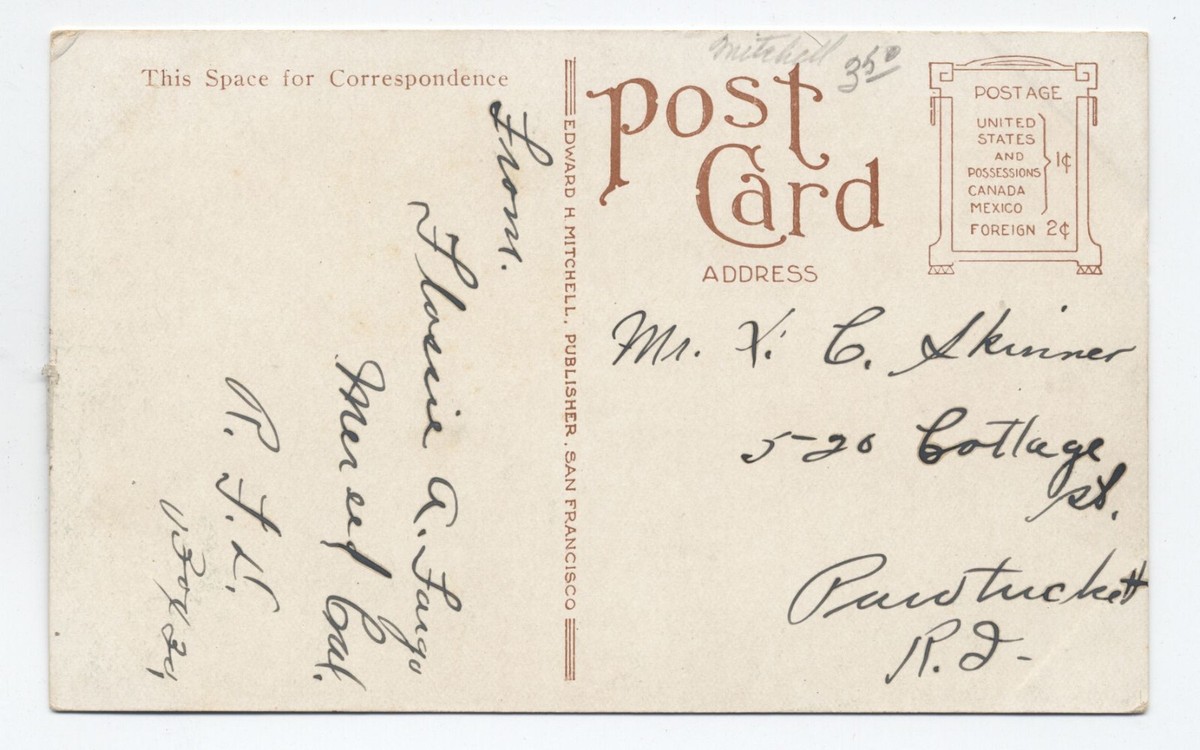 This Space for Correspondence
From.
Flossie A. Fargo
Merced Cal.
R. F. D.
Box 20,
EDWARD H. MITCHELL, PUBLISHER. SAN FRANCISCO
Mitchell 350
Post
Card
ADDRESS
POSTAGE
UNITED
STATES
AND
POSSESSIONS
CANADA
MEXICO
1¢
FOREIGN 2¢
Mr. X. C. Skinner
520 Cottage
St.
Pawtuckett
R.I.